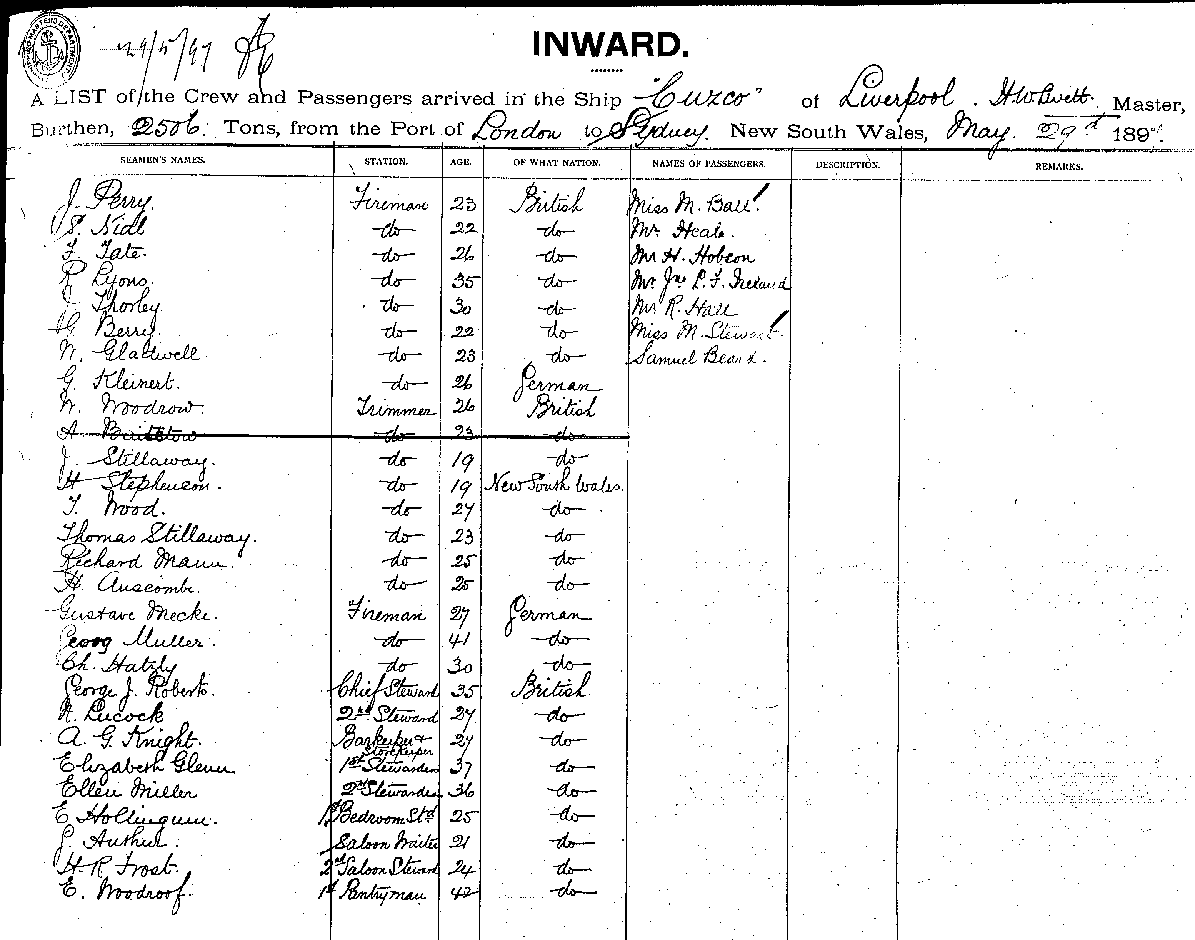 29/5/97
INWARD.
A LIST of the Crew and Passengers arrived in the Ship "Cuzco" of Liverpool. Master,
Burthen, 2506. Tons, from the Port of London to Sydney. New South Wales, May. 29th 1897.
SEAMEN'S NAMES. STATION. AGE. OF WHAT NATION. NAMES OF PASSENGERS. DESCRIPTION. REMARKS.
J. Perry. Fireman 23 British Miss M. Ball.
S. Nidl do 22 do Mr Heale.
F. Tate. do 26 do Mr H. Hobson
R Lyons. do 35 do Mr Jno L. F. Ireland
J. Thorley do 30 do Mr R. Hall
G. Berry. do 22 do Miss M. Stewart.
W. Gladwell. do 23 do Samuel Beard.
G. Kleinert. do 26 German
W. Woodrow. Trimmer 26 British
A do 23 do
J. Stillaway. do 19 do
H Stephenson. do 19 New South Wales.
T. Wood. do 27 do
Thomas Stillaway. do 23 do
Richard Mann. do 25 do
H. Anscombe. do 25 do
Gustave Mecke. Fireman 27 German
Georg Muller. do 41 do
Ch. Hatzly do 30 do
George J. Roberts. Chief Steward 35 British
N. Lucock 2nd Steward 27 do
A. G. Knight. Barkeeper & Storekeeper 27 do
Elizabeth Glenn 1st Stewardess 37 do
Ellen Miller 2nd Stewardess 36 do
E. Hollingum. 1st Bedroom Std 25 do
J. Arthur. Saloon Waiter 21 do
H. R Frost. 2nd Saloon Steward 24 do
E. Woodroof. 1st Pantryman 42 do